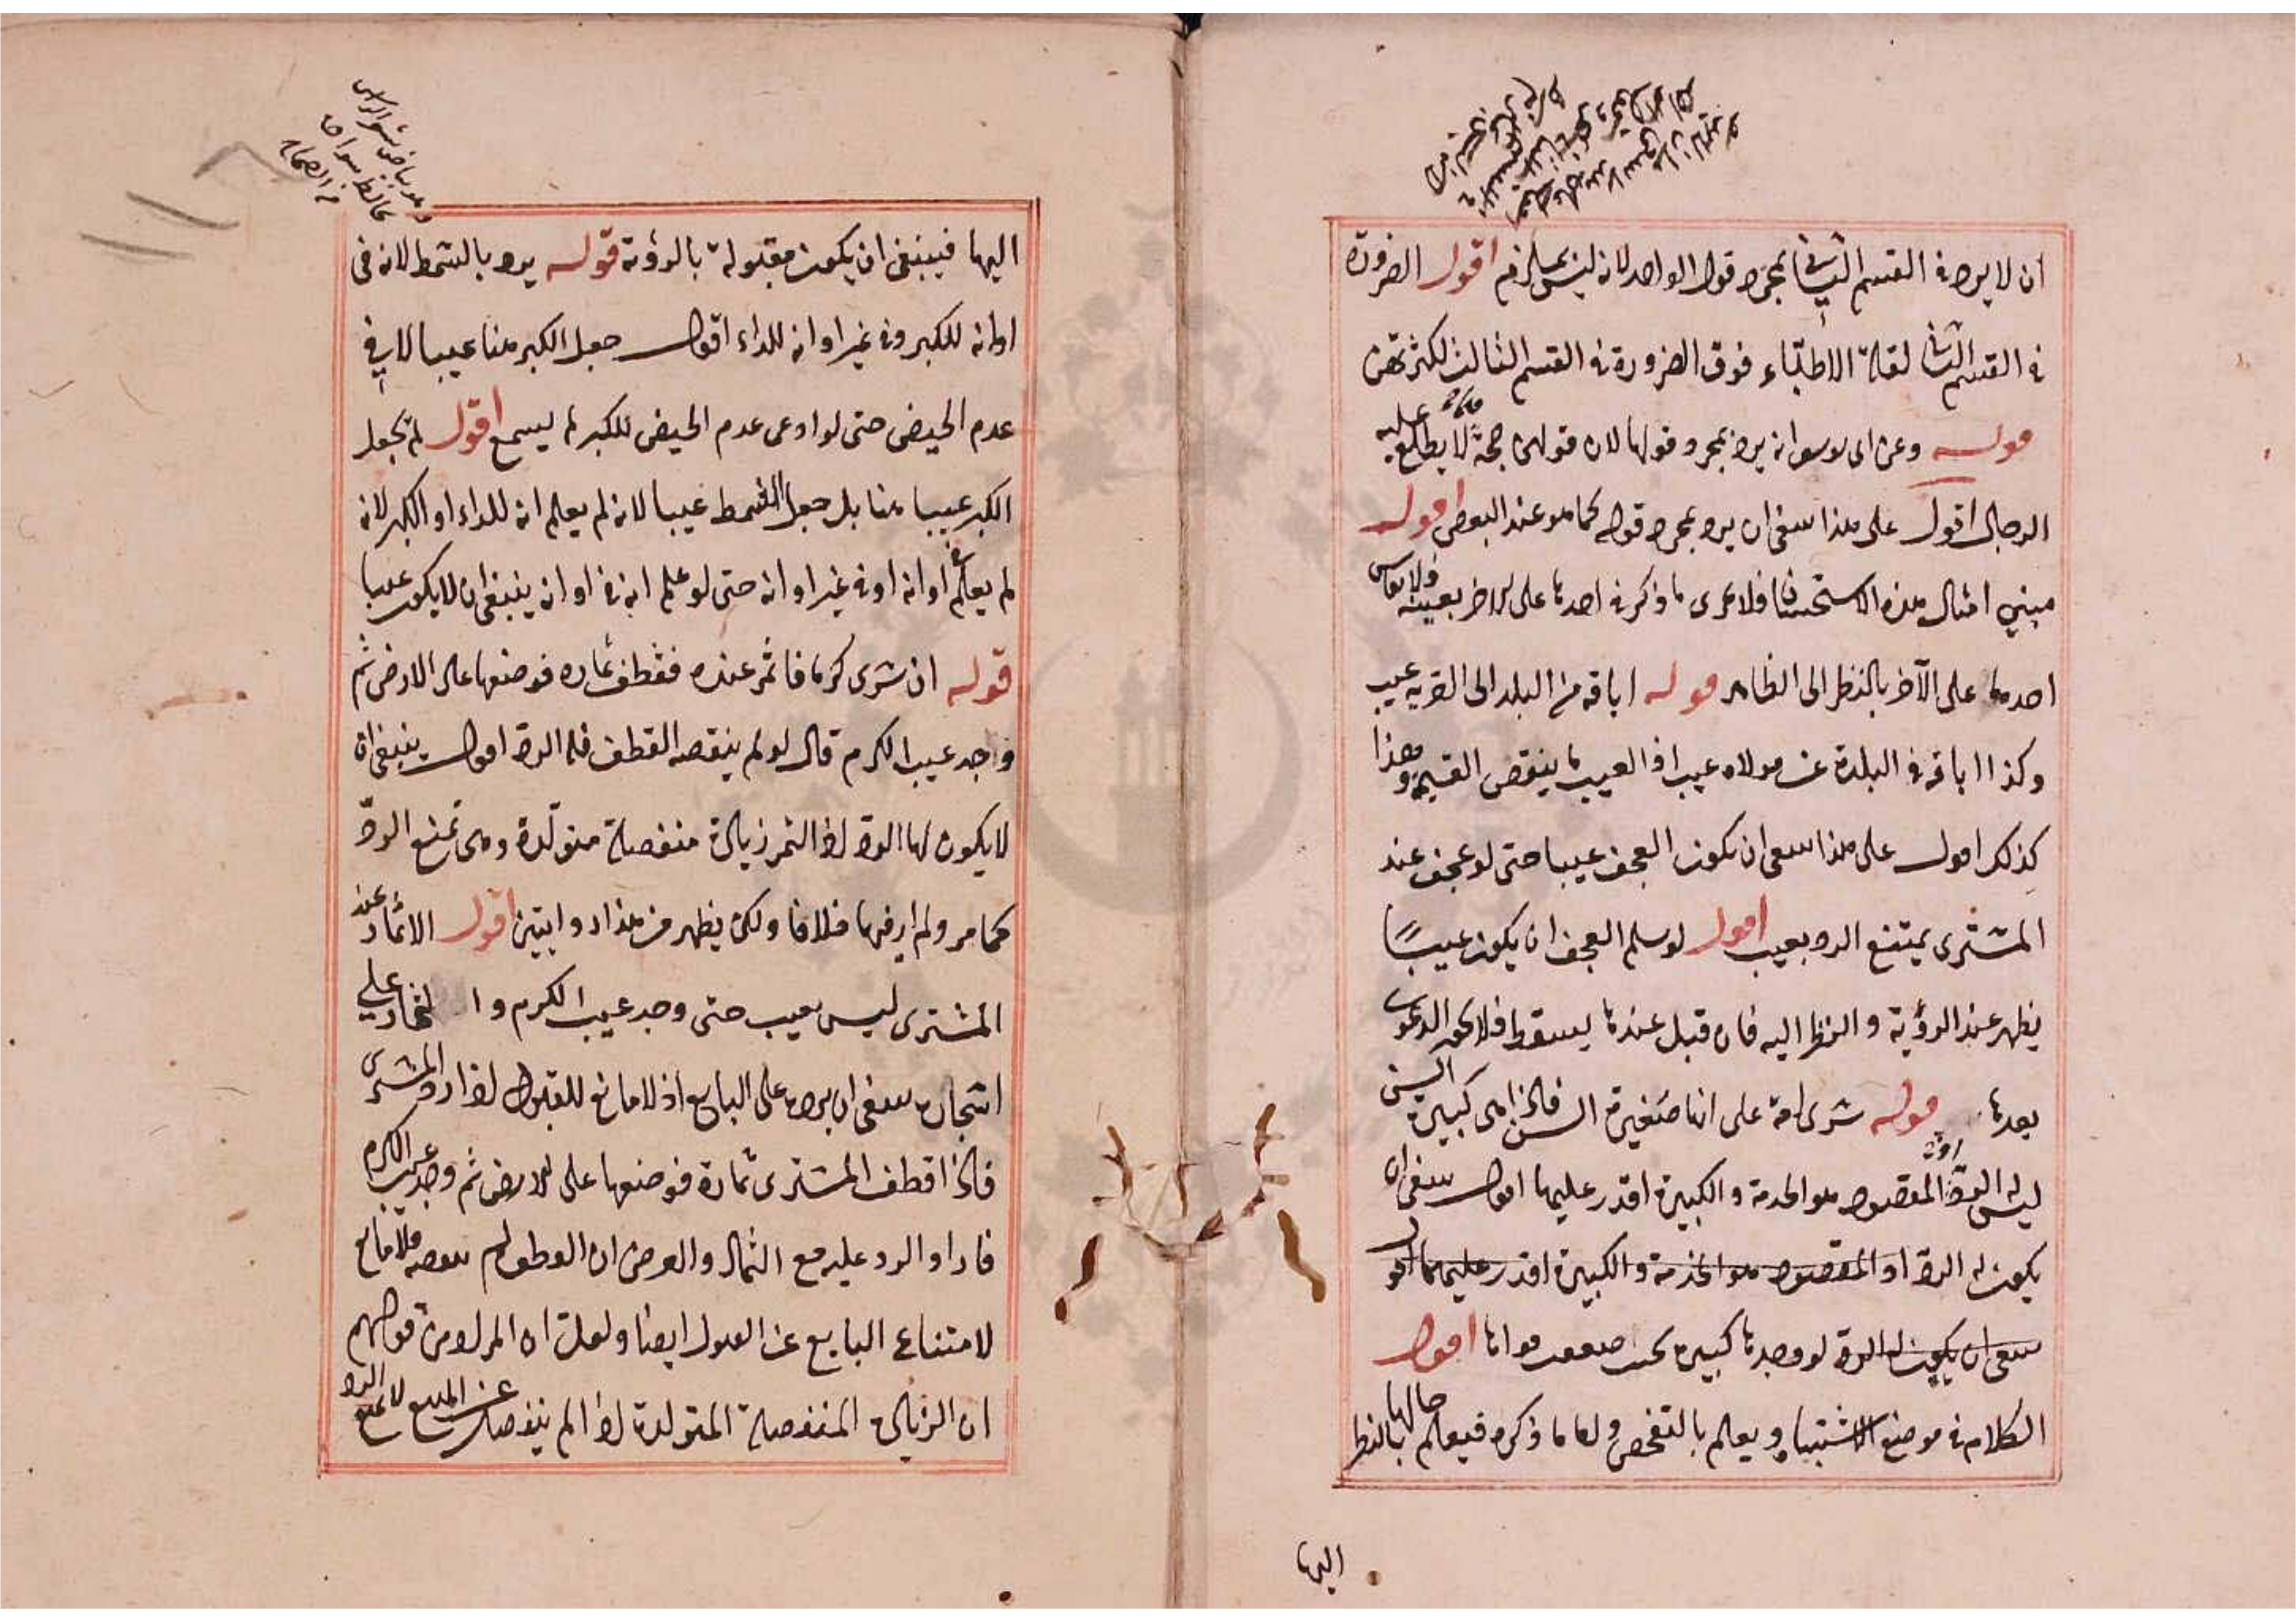 ان لا يرد في القسم الثاني بمجرد قول الواحد لانه ليس بملزم اقول الضرورة
في القسم الثاني لقلة الاطباء فوق الضرورة في القسم الثالث لكثرتهن
قوله وعن ابى يوسف انه يرد بمجرد قولها لان قولهن حجة فيما لا يطلع عليه
الرجال اقول على هذا ينبغى ان يرد بمجرد قوله كما هو عند البعض اقول
مبنى امثال هذه الاستحسان فلا يجرى ما ذكر في احدها على الاخر بعينه ولا يقاس
احدها على الآخر بالنظر الى الظاهر قوله اباقه من البلد الى القرية عيب
وكذا اباقه في البلدة عن مولاه عيب اذ العيب ما ينقص القيمة وهذا
كذلك اقول على هذا ينبغى ان يكون العجف عيبا حتى لو عجف عند
المشترى يمتنع الرد بعيب اقول لو سلم العجف ان يكون عيبًا
يظهر عند الرؤية والنظر اليه فان قبل عندها يسقط فلا الدعوى
بعدها قوله شرى امة على انها صغيرة السن فاذا هى كبيرة السن
ليس له الرد اذ المقصود هو الخدمة والكبيرة اقدر عليها اقول ينبغى ان
يكون له الرد اذ المقصود هو الخدمة والكبيرة اقدر عليها اقول
ينبغى ان يكون له الرد لو وجدها كبيرة بحيث ضعفت قواها اقول
الكلام في موضع الاشتباه ويعلم بالتفحص واما ما ذكره فيعلم حالها بالنظر
اليها
اليها فينبغى ان يكون مقبولة بالرؤية قوله يرد بالشمط لانه فى
اوانه للكبر وفى غير اوانه للداء اقول جعل الكبر هنا عيبا لا في
عدم الحيض حتى لو ادعى عدم الحيض للكبر لم يسمع اقول لم يجعل
الكبر عيبا هنا بل جعل الشمط عيبا لانه لم يعلم انه للداء او الكبر لانه
لم يعلم في اوانه او في غير اوانه حتى لو علم انه في اوانه ينبغى ان لا يكون عيبا
قوله ان شرى كرما فاثمر عنده فقطف ثماره فوضعها على الارض ثم
وجد عيب الكرم قال لو لم ينقصه القطف فله الرد اقول ينبغى ان
لا يكون لها الرد اذ الثمر زيادة منفصلة متولدة وهى تمنع الرد
كما مر ولم ار فيها خلافا ولكن يظهر من هذا روايتين اقول الاثمار عند
المشترى ليس بعيب حتى وجد عيب الكرم و على
اشجاره ينبغى ان يرده على البايع اذ لا مانع للقبول اذا رد المشترى
فاذا اقطف المشترى ثماره فوضعها على الارض ثم وجد عيب الكرم
فاراد الرد عليه مع الثمار والفرض ان القطف لم ينقصه فلا مانع
لامتناع البايع عن القبول ايضا ولعلت ان المراد من قولهم
ان الزيادة المنفصلة المتولدة اذا لم ينفصل عن المبيع لا تمنع الرد